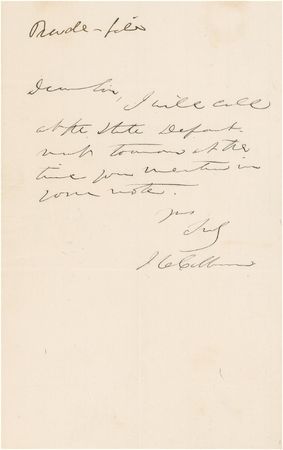 Dear Sir,
I will call
at the State Depart-
ment tomorrow at the
time you mention in
your note.
Yrs
Truly
J C Calhoun